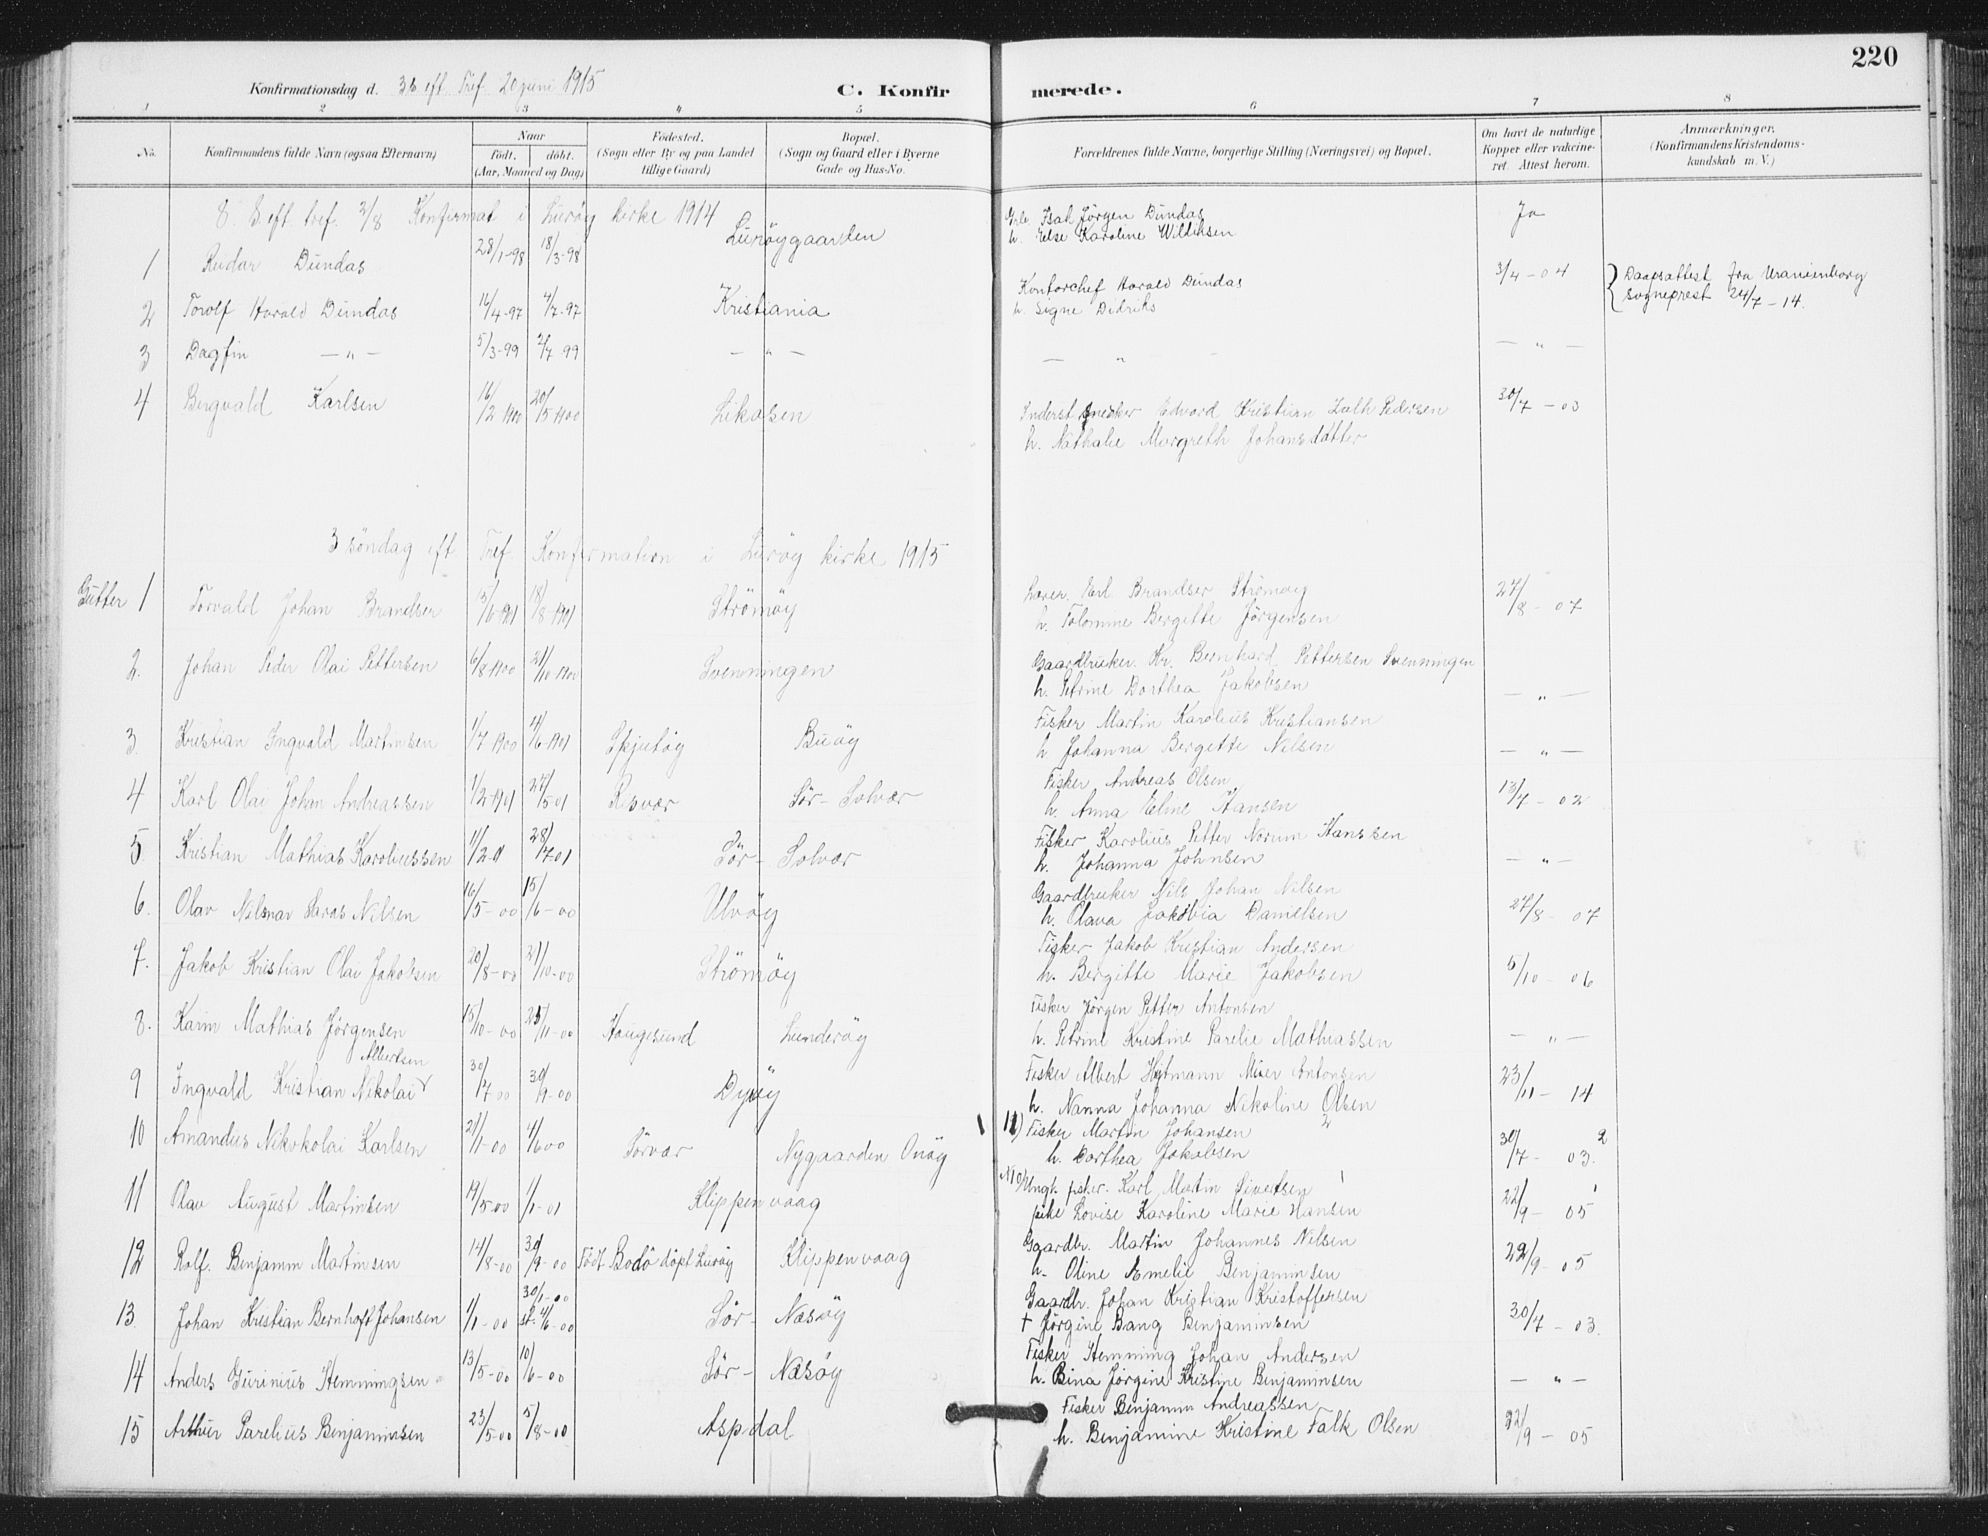 220
Konfirmationsdag d. 3 s eft Tref. 20 juni 1915
C. Konfirmerede.
1 2 3 4 5 6 7 8
No. Konfirmandens fulde Navn (ogsaa Efternavn) Naar födt. döbt. (Aar, Maaned og Dag) Födested. (Sogn eller By og paa Landet tillige Gaard) Bopæl. (Sogn og Gaard eller i Byerne Gade og Hus-No. Forældrenes fulde Navne, borgerlige Stilling (Næringsvei) og Bopæl. Om havt de naturlige Kopper eller vakcineret. Attest herom. Anmærkninger. (Konfirmandens Kristendomskundskab m. V.)
8. S eft tref. 2/8 Konfirmat i Luröy kirke 1914
1 Reidar Dundas 28/1-98 18/3-98 Luröygaarden Isak Jörgen Dundas Ja
h. Else Karoline Wildiksen
2 Torolf Harald Dundas 16/4-97 4/7-97 Kristiania Kontorchef Harald Dundas 3/4-04 Daapsattest fra Uranienborg
h. Signe Didriks sogneprest 24/7-14.
3 Dagfin — " — 5/3-99 2/7 99 — " — — " — — " —
4 Bergvald Karlsen 16/2 1900 20/5 1900 Likosen Inderst snedker Edvard Kristian Luth Pedersen 30/7-03
h. Nathalie Margreth Johansdatter
3 söndag eft Tref. Konfirmation i Luröy kirke 1915
Gutter 1 Torvald Johan Brandser 15/6 1901 18/8 1901 Strömöy Lærer. Erl. Brandser Strömöy 27/8-07
h. Tolomine Bergitte Jörgensen
2. Johan Peder Olai Pettersen 6/8 1900 21/10 1900 Svenningen Gaardbruker. Kr. Bernhard Pettersen Svenningen
h. Petrine Dorthea Jakobsen — " —
3. Kristian Ingvald Martinsen 1/7 1900 4/6 1901 Skjutöy Buöy Fisker Martin Karolius Kristiansen
h Johanna Bergitte Nilsen — " —
4 Karl Olai Johan Andreassen 1/2 1901 27/5 01 Risvær Sör-Solvær Fisker Andreas Olsen 13/7-02
h. Anna Eline Hansen
5. Kristian Mathias Karoliussen 11/2 01 28/7 01 Sör-Solvær Fisker Karolius Petter Norum Hanssen
h. Johanna Johnsen — " —
6. Olav Nilsmar Saras Nilsen 16/5-00 15/6-00 Ulvöy Gaardbruker Nils Johan Nilsen 27/8-07
h. Olava Jakobia Danielsen
7. Jakob Kristian Olai Jakobsen 20/8-00 21/10-00 Strömöy Fisker Jakob Kristian Andersen 5/10-06
h. Bergitte Marie Jakobsen
8. Karin Mathias Jörgensen 15/10-00 25/11-00 Haugesund Lunderöy Fisker Jörgen Petter Antonsen
h. Petrine Kristine Parelie Mathiassen — " —
9 Ingvald Kristian Nikolai Albertsen 30/7 00 30/9-00 Dyöy Fisker Albert Hytmann Meier Antonsen 23/11-14
h. Nanna Johanna Nikoline Olsen
10 Amandus Nikokolai Karlsen 21/1-00 4/6 00 Sörvær Nygaarden Onöy 11) Fisker Martin Johansen 2 30/7-03. 2
h. Dorthea Jakobsen
11 Olav August Martinsen 19/5-00 1/1-01 Klippenvaag N10) Ungk. fisker. Karl Martin Sivertsen 1 22/9-05 1
pike Lovise Karoline Marie Hansen
12 Rolf. Benjamin Martinsen 14/8-00 30/9-00 Födt Bodö döpt Luröy Klippenvaag Gaardbr. Martin Johannes Nilsen 22/9-05
h. Oline Emelie Benjaminsen
13 Johan Kristian Bernhoft Johansen 1/1-00 30/1-00 st. 4/6-00 Sör-Næsöy Gaardbr. Johan Kristian Kristoffersen 30/7-03.
† Jörgine Bang Benjaminsen
14 Anders Gurinius Hemmingsen 13/5-00 10/6-00 Sör-Næsöy Fisker Hemming Johan Andersen
h. Bina Jörgine Kristine Benjaminsen — " —
15 Arthur Parelius Benjaminsen 23/5-00 5/8-00 Aspdal Fisker Benjamin Andreassen 22/9-05
h. Benjamine Kristine Falk Olsen